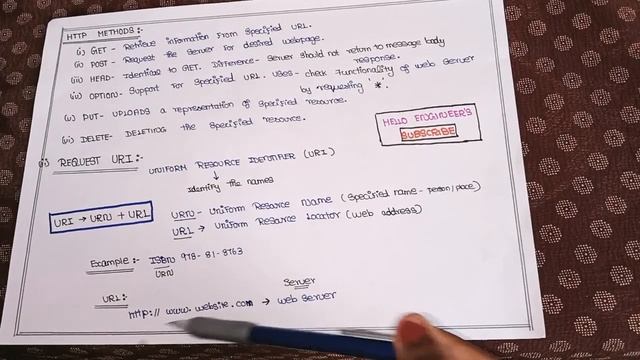 HTTP METHODS:-
(i) GET - Retrieve information from specified URL.
(ii) POST - Request the server for desired webpage.
(iii) HEAD - Identical to GET. Difference - Server should not return to message body response.
(iv) OPTION - Support for specified URL. Uses - check functionality of web server by requesting '*'.
(v) PUT - UPLOADS a representation of specified resource.
(vi) DELETE - DELETING the specified resource.
HELLO ENGINEER'S
SUBSCRIBE
(ii) REQUEST URI:-
UNIFORM RESOURCE IDENTIFIER (URI)
↓
Identify the names
URI → URN + URL
URN - Uniform Resource Name (Specified name - person/place)
URL → Uniform Resource Locator (Web address)
Example:- ISBN 978-81-8763
URN
Server
URL:
http:// www.website.com → web server